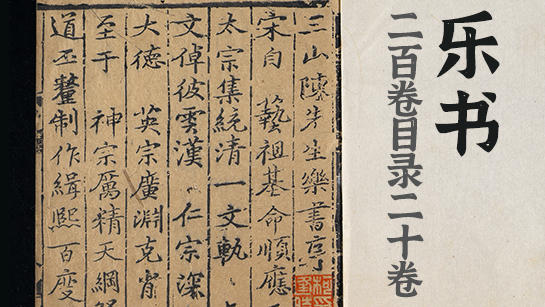 乐书
二百卷目录二十卷
三山陳先生樂書序
宋自 藝祖基命順應
太宗集統清一文軌
文倬彼雲漢 仁宗深
大德 英宗廣淵克肖
至于 神宗厲精天綱
道丕釐制作緝熙百度